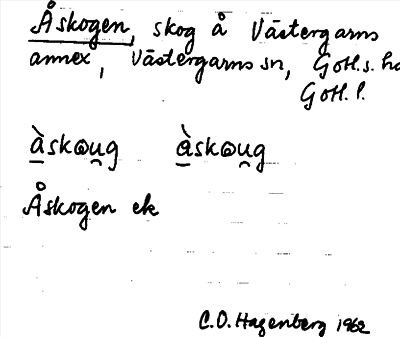 Åskogen, skog å Västergarns
annex, Västergarns sn, Gotl. s. hd
Gotl. l.
å̀skɷu̯g à̱skɷu̯g
Åskogen ek
C.O. Hagenberg 1962